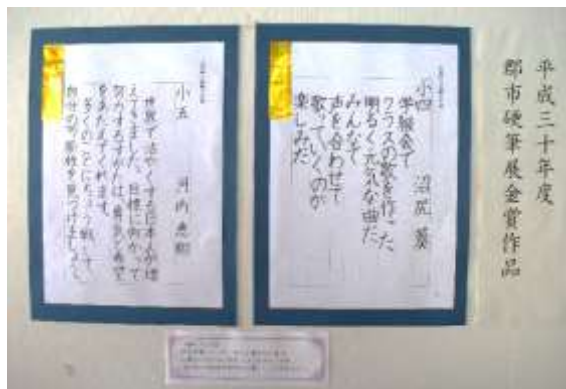 平成三十年度
郡市硬筆展金賞作品
小四 沼尻 葵
学級会で
クラスの歌を作った
明るく元気な曲だ
みんなで
声を合わせて
歌っていくのが
楽しみだ
小五 河内
世界で活やくする日本人がふ
えてきました。目標に向かって
努力するすがたは、勇気と希望
をあたえてくれます。
多くのことにちょう戦して、
自分の可能性を見つけましょう。